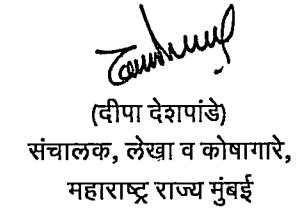 (दीपा देशपांडे)
संचालक, लेखा व कोषागारे,
महाराष्ट्र राज्य मुंबई